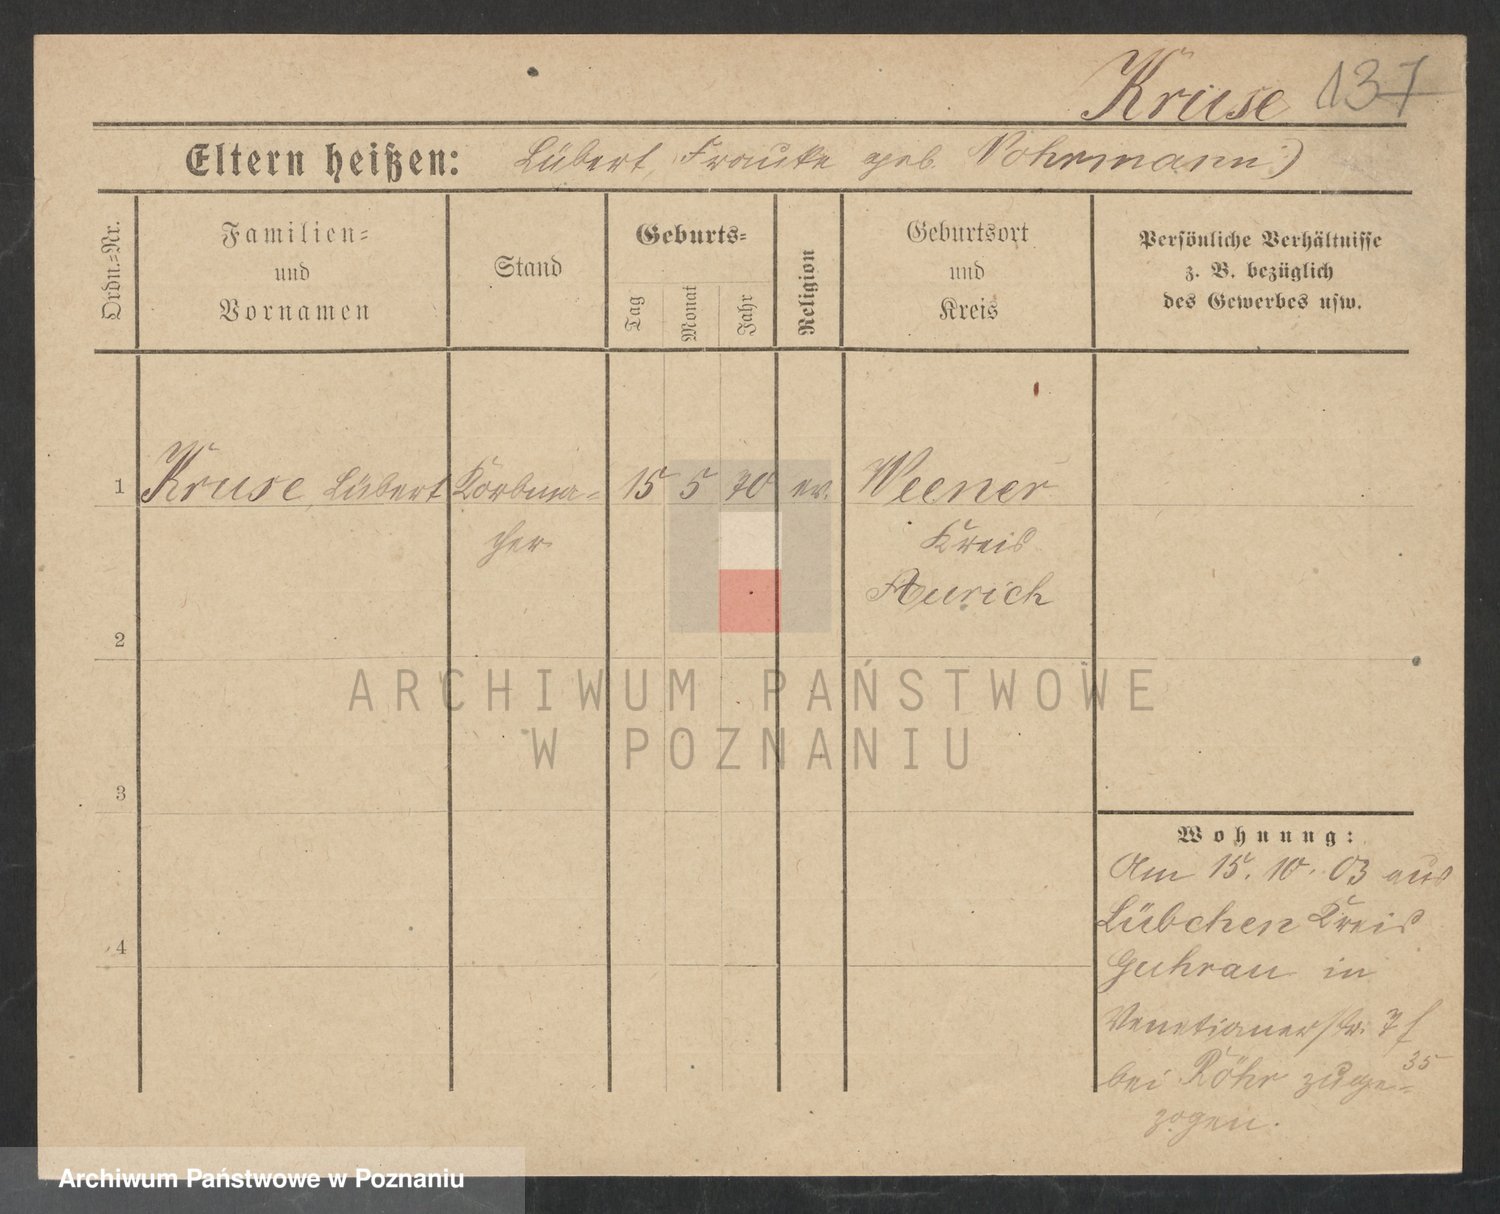 Kruse 137
Eltern heißen: Lübert, Frauke geb. Vohrmann)
Ordn.=Nr.
Familien=
und
Vornamen
Stand
Geburts=
Tag
Monat
Jahr
Religion
Geburtsort
und
Kreis
Persönliche Verhältnisse
z. B. bezüglich
des Gewerbes usw.
1 Kruse, Lübert Korbma= 15 5 70 ev. Weener
cher Kreis
Aurich
2
3
4
Wohnung:
Am 15. 10. 03 aus
Lübchen Kreis
Guhrau in
Venetianerstr. 7
35
bei Röhr zuge=
zogen.
ARCHIWUM PAŃSTWOWE
W POZNANIU
Archiwum Państwowe w Poznaniu